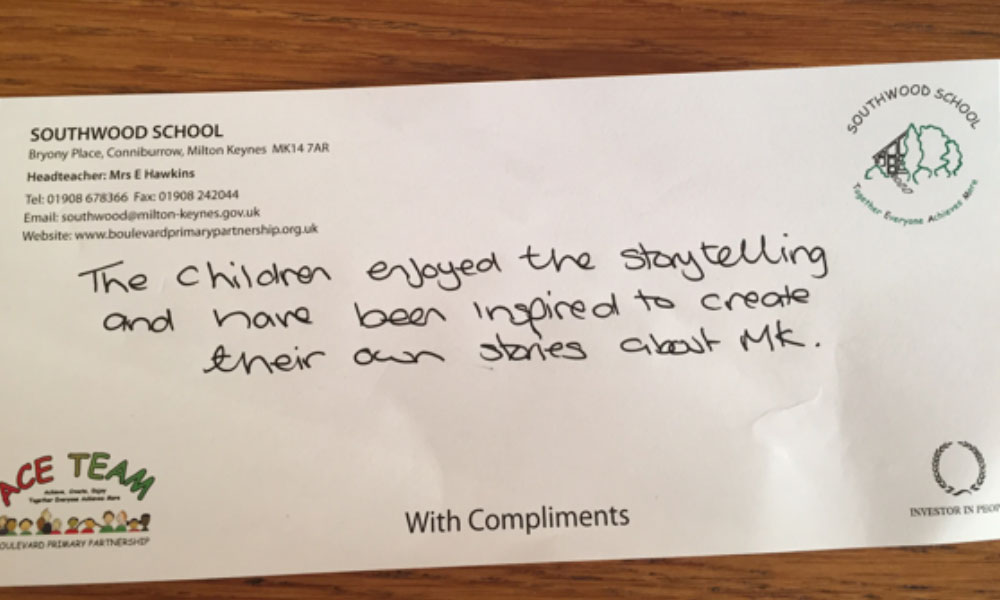 SOUTHWOOD SCHOOL
Bryony Place, Conniburrow, Milton Keynes MK14 7AR
Headteacher: Mrs E Hawkins
Tel: 01908 678366 Fax: 01908 242044
Email: southwood@milton-keynes.gov.uk
Website: www.boulevardprimarypartnership.org.uk
SOUTHWOOD SCHOOL
Together Everyone Achieves More
The children enjoyed the storytelling
and have been inspired to create
their own stories about MK.
ACE TEAM
Achieve, Create, Enjoy
Together Everyone Achieves More
BOULEVARD PRIMARY PARTNERSHIP
With Compliments
INVESTOR IN PEOP